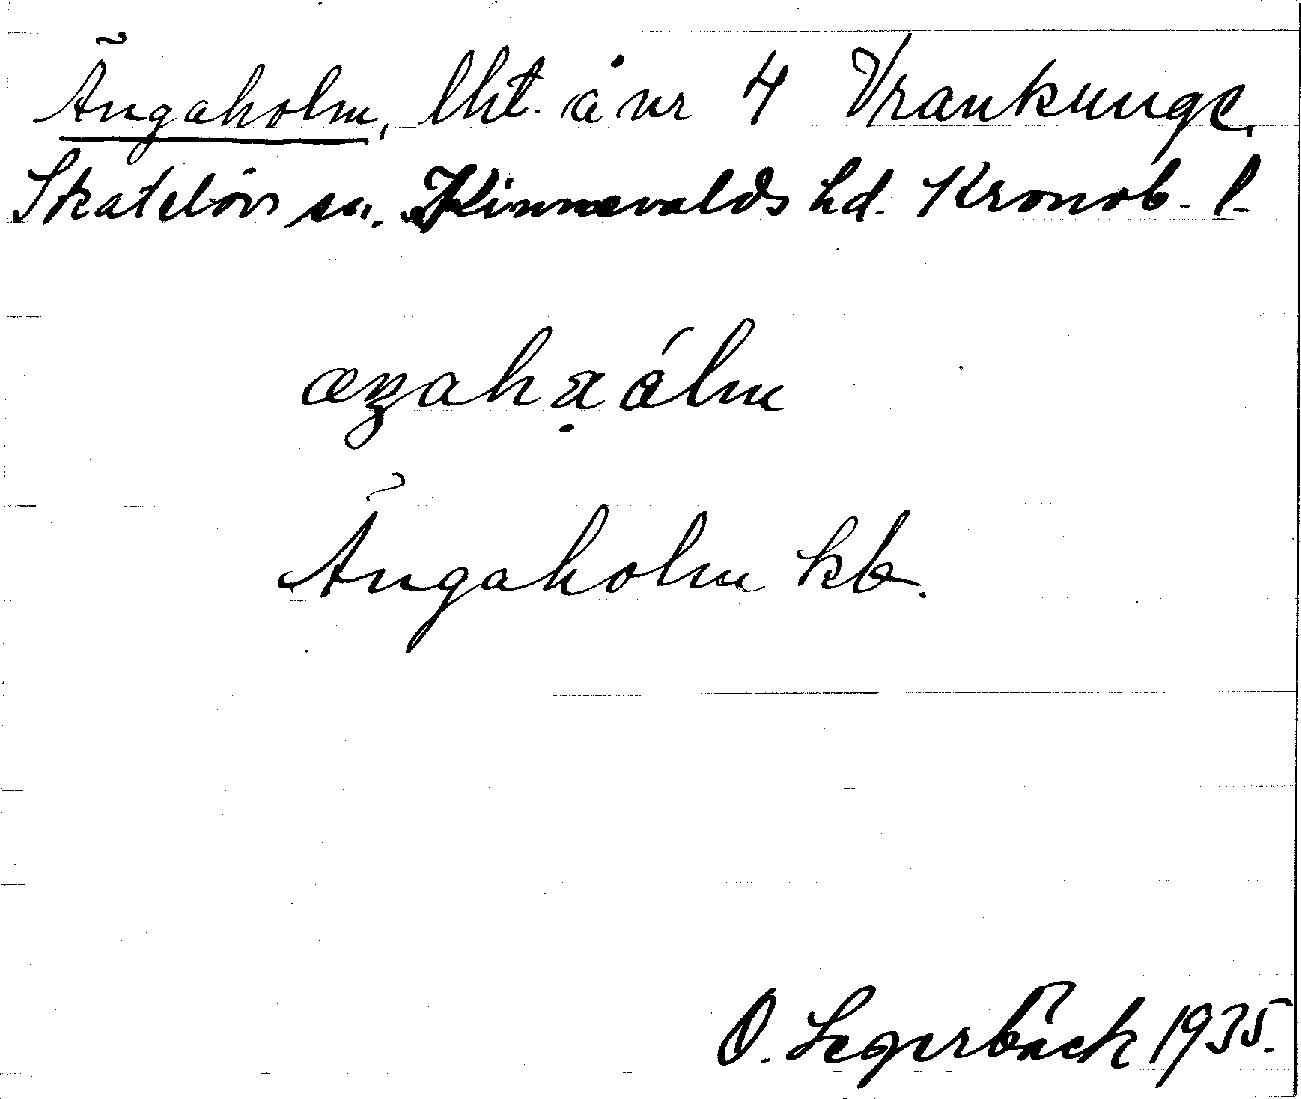 Ängaholm, lht. å nr 4 Vrankunge,
Skatelövs sn. Kinnevalds hd. Kronob. l.
Ängaholm kb.
O. Segerbäck 1935.